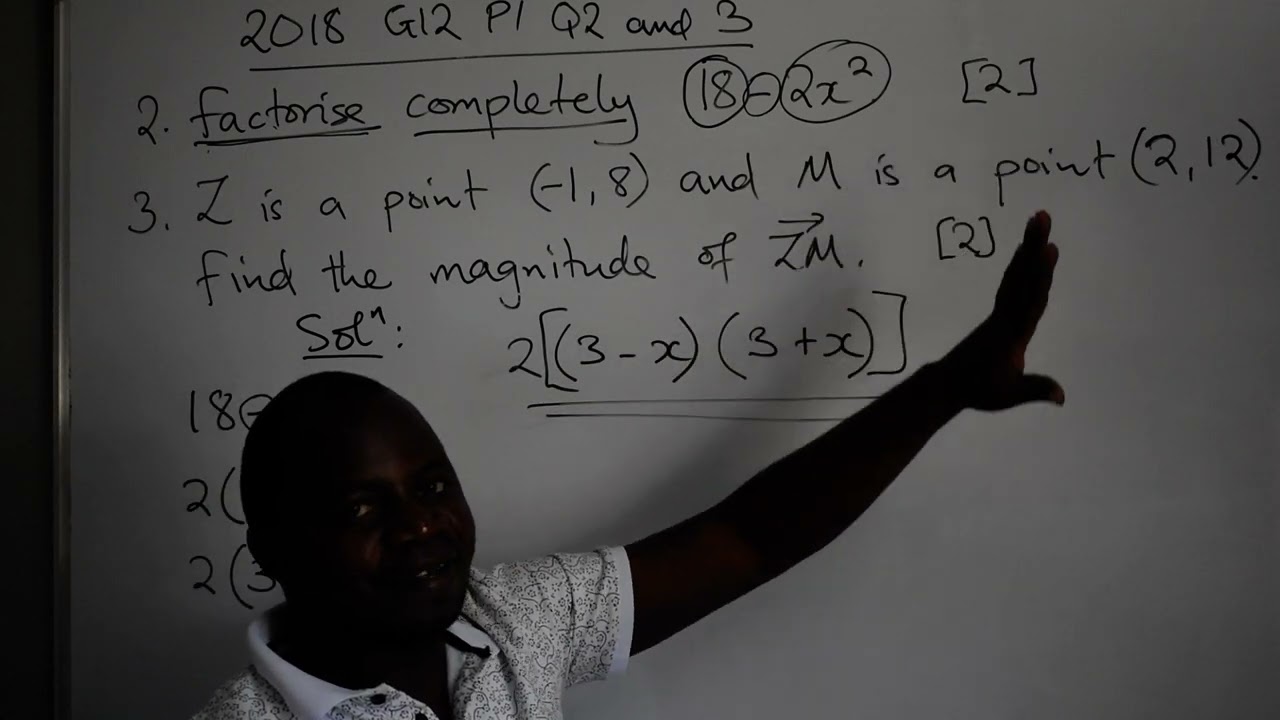 2018 G12 P1 Q2 and 3
2. factorise completely 18-2x² [2]
3. Z is a point (-1, 8) and M is a point (2, 12).
find the magnitude of \overrightarrow{ZM}. [2]
Solⁿ:
2[(3-x)(3+x)]
18-
2(
2(3